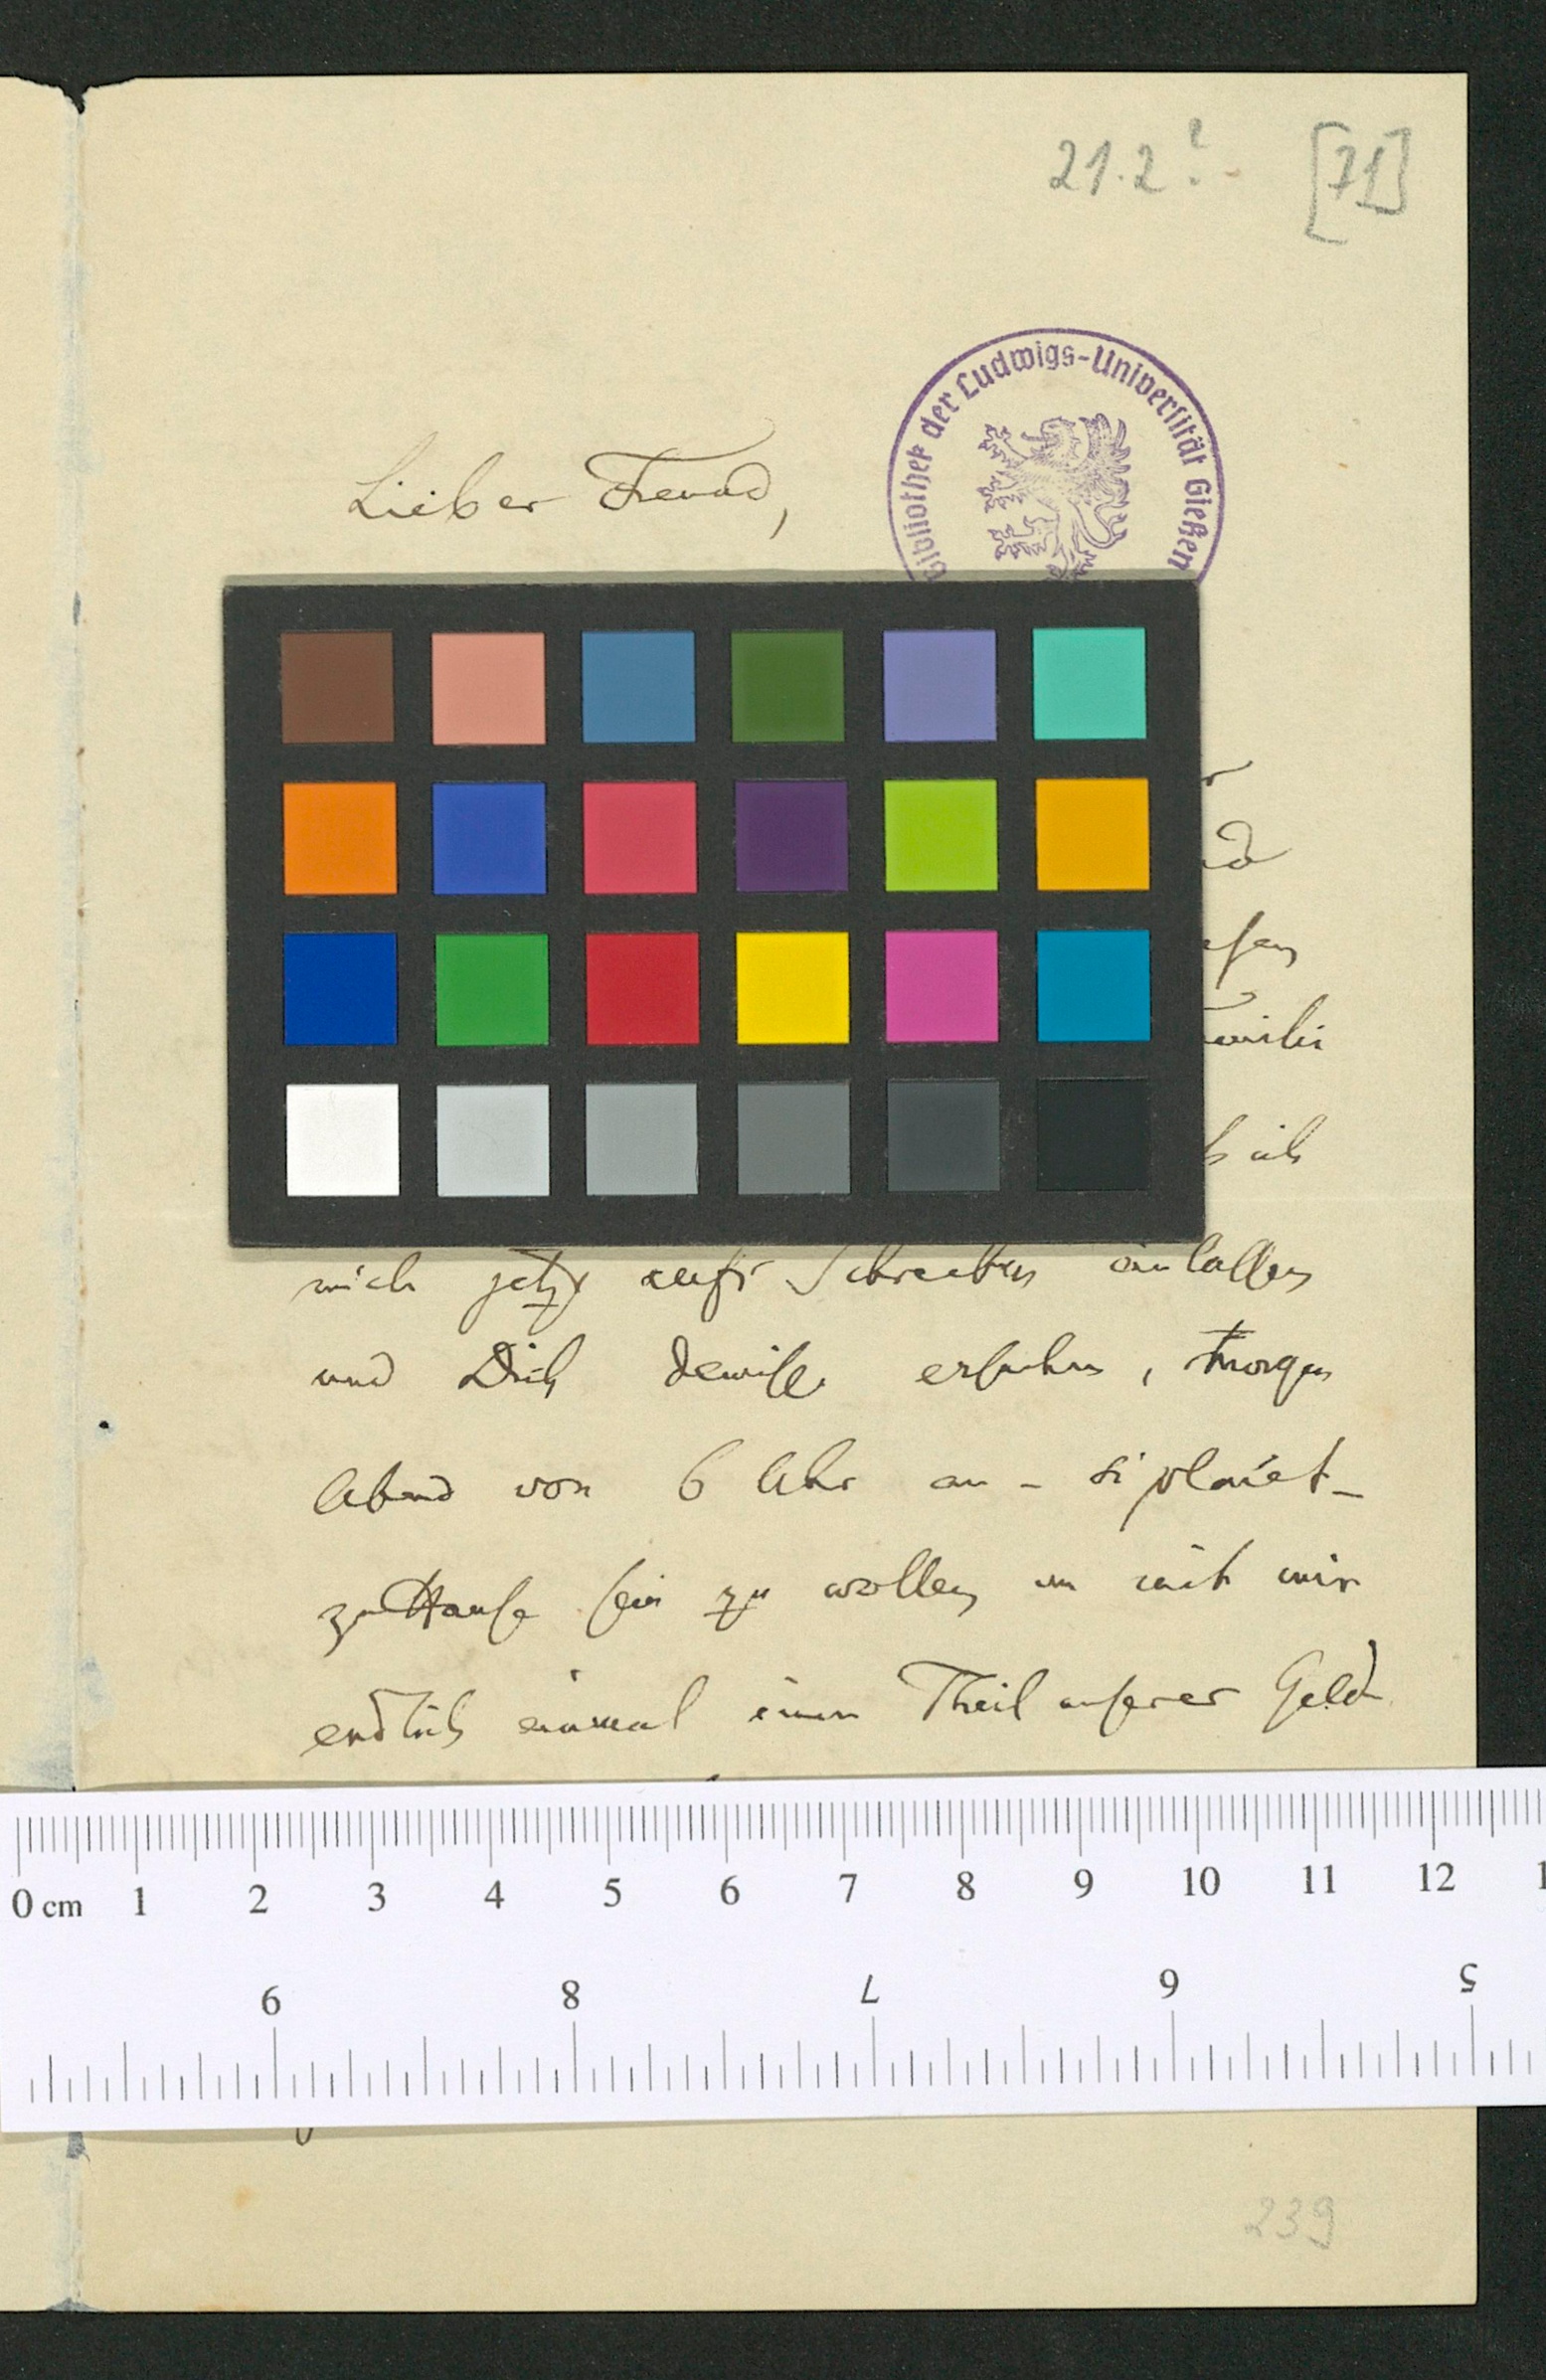 21.2.? [71]
Bibliothek der Ludwigs-Universität Gießen
Lieber Freund,
ich
mich jetzt aufs Schreiben
und Dich ersuchen, morgen
Abend von 6 Uhr an - si placet -
zu Hause sein zu wollen um mit mir
endlich einmal einen Theil unserer Geld
0 cm 1 2 3 4 5 6 7 8 9 10 11 12 1
9 8 7 6 5
239